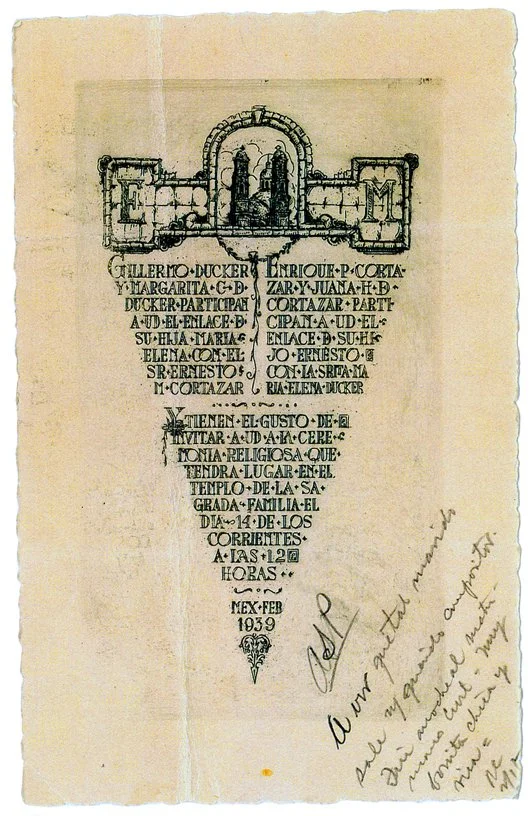 E
M
GUILLERMO·DUCKER
Y·MARGARITA·G·D·
DUCKER·PARTICIPAN
A·UD·EL·ENLACE·D·
SU·HIJA·MARIA·
ELENA·CON·EL·
SR·ERNESTO·
M·CORTAZAR
ENRIQUE·P·CORTA-
ZAR·Y·JUANA·H·D·
CORTAZAR·PARTI-
CIPAN·A·UD·EL·
ENLACE·D·SU·HI-
JO·ERNESTO·
CON·LA·SRITA·MA
RIA·ELENA·DUCKER
Y·TIENEN·EL·GUSTO·DE·
INVITAR·A·UD·A·LA·CERE-
MONIA·RELIGIOSA·QUE·
TENDRA·LUGAR·EN·EL·
TEMPLO·DE·LA·SA-
GRADA·FAMILIA·EL
DIA·14·DE·LOS
CORRIENTES·
A·LAS·12
HORAS··
MEX·FEB
1939
A ver que tal marido
sale my querido
Fui anoche al matri-
monio civil - muy
bonita chica y
rica =